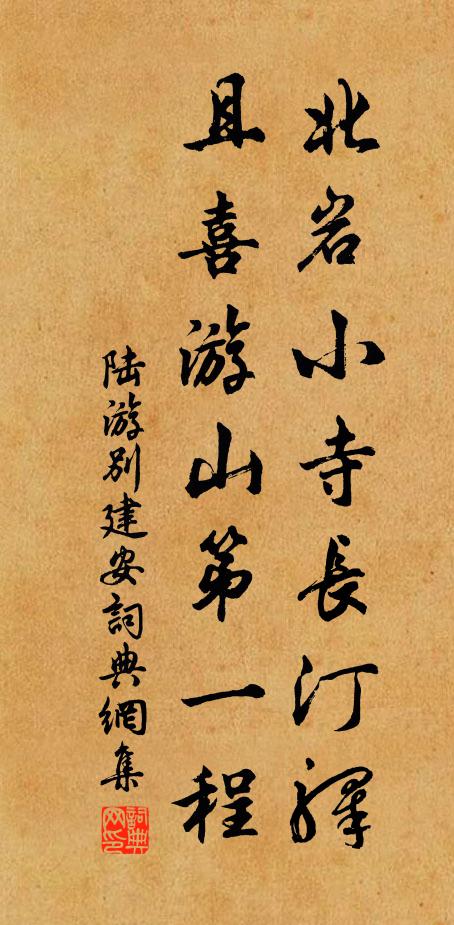 北岩小寺長汀驛
且喜游山第一程
陆游别建安詞典網集
詞典网印